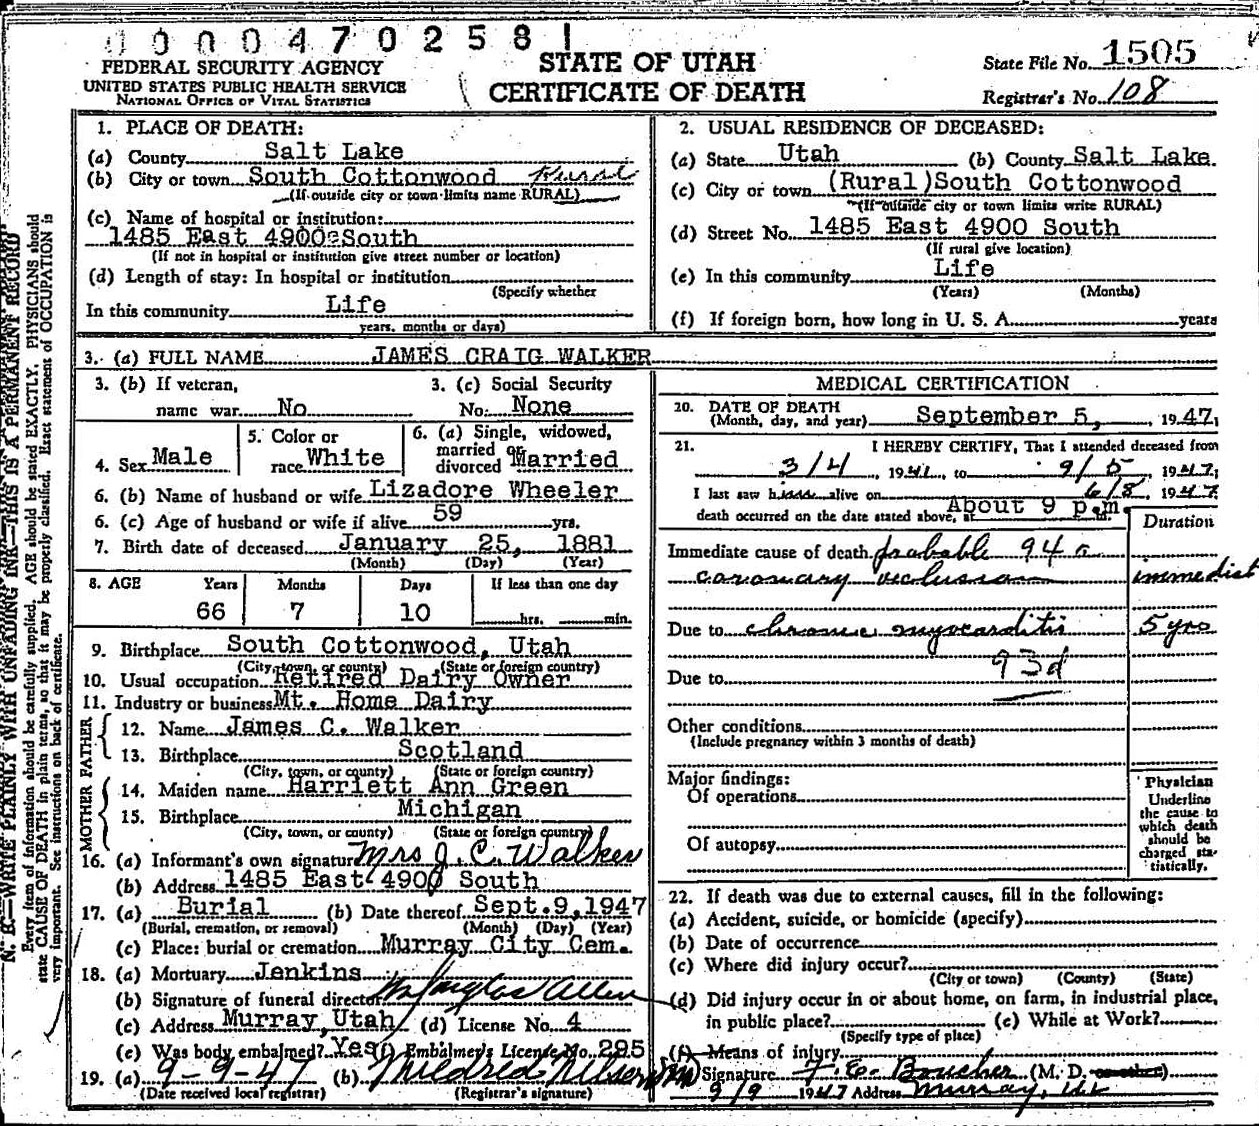 0000470258 1
FEDERAL SECURITY AGENCY
UNITED STATES PUBLIC HEALTH SERVICE
NATIONAL OFFICE OF VITAL STATISTICS
STATE OF UTAH
CERTIFICATE OF DEATH
State File No. 1505
Registrar's No. 108
N. B.—WRITE PLAINLY WITH UNFADING INK—THIS IS A PERMANENT RECORD
Every item of information should be carefully supplied. AGE should be stated EXACTLY. PHYSICIANS should
state CAUSE OF DEATH in plain terms, so that it may be properly classified. Exact statement of OCCUPATION is
very important. See instructions on back of certificate.
1. PLACE OF DEATH:
(a) County Salt Lake
(b) City or town South Cottonwood Rural
(If outside city or town limits name RURAL)
(c) Name of hospital or institution:
1485 East 4900 South
(If not in hospital or institution give street number or location)
(d) Length of stay: In hospital or institution
(Specify whether
In this community Life
years, months or days)
2. USUAL RESIDENCE OF DECEASED:
(a) State Utah (b) County Salt Lake
(c) City or town (Rural) South Cottonwood
(If outside city or town limits write RURAL)
(d) Street No. 1485 East 4900 South
(If rural give location)
(e) In this community Life
(Years) (Months)
(f) If foreign born, how long in U. S. A. years
3. (a) FULL NAME JAMES CRAIG WALKER
3. (b) If veteran, name war No
3. (c) Social Security No. None
4. Sex Male
5. Color or race White
6. (a) Single, widowed, married or divorced Married
6. (b) Name of husband or wife Lizadore Wheeler
6. (c) Age of husband or wife if alive 59 yrs.
7. Birth date of deceased January 25, 1881
(Month) (Day) (Year)
8. AGE Years Months Days If less than one day
66 7 10 hrs. min.
9. Birthplace South Cottonwood, Utah
(City, town, or county) (State or foreign country)
10. Usual occupation Retired Dairy Owner
11. Industry or business Mt. Home Dairy
FATHER
12. Name James C. Walker
13. Birthplace Scotland
(City, town, or county) (State or foreign country)
MOTHER
14. Maiden name Harriett Ann Green
15. Birthplace Michigan
(City, town, or county) (State or foreign country)
16. (a) Informant's own signature Mrs J. C. Walker
(b) Address 1485 East 4900 South
17. (a) Burial (b) Date thereof Sept. 9, 1947
(Burial, cremation, or removal) (Month) (Day) (Year)
(c) Place: burial or cremation Murray City Cem.
18. (a) Mortuary Jenkins
(b) Signature of funeral director Allen
(c) Address Murray, Utah (d) License No. 4
(e) Was body embalmed? Yes (f) Embalmer's License No. 295
19. (a) 9-9-47 (b) Mildred Nelson
(Date received local registrar) (Registrar's signature)
MEDICAL CERTIFICATION
20. DATE OF DEATH
(Month, day, and year) September 5, 1947
21. I HEREBY CERTIFY, That I attended deceased from
3/4, 1941, to 9/5 1947,
I last saw him alive on 6/8, 1947
death occurred on the date stated above, at About 9 p.m.
Duration
Immediate cause of death probable 94a
coronary occlusion immediate
Due to chronic myocarditis 5 yrs
93d
Due to
Other conditions
(Include pregnancy within 3 months of death)
Major findings:
Of operations
Of autopsy
Physician
Underline the cause to which death should be charged statistically.
22. If death was due to external causes, fill in the following:
(a) Accident, suicide, or homicide (specify)
(b) Date of occurrence
(c) Where did injury occur?
(City or town) (County) (State)
(d) Did injury occur in or about home, on farm, in industrial place,
in public place? (e) While at Work?
(Specify type of place)
(f) Means of injury
Signature F. E. Boucher (M. D. or other)
9/9 1947 Address Murray, Ut